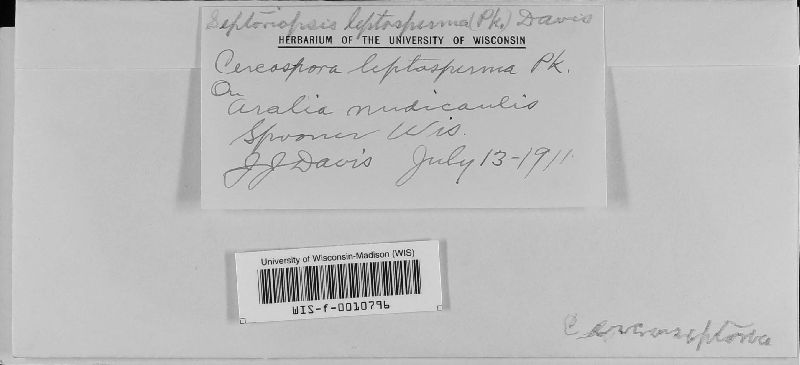 Septoriopsis leptosperma (Pk.) Davis
HERBARIUM OF THE UNIVERSITY OF WISCONSIN
Cercospora leptosperma Pk.
On
Aralia nudicaulis
Spooner Wis.
J J Davis July 13-1911
University of Wisconsin-Madison (WIS)
WIS-f-0010796
Cercoseptoria